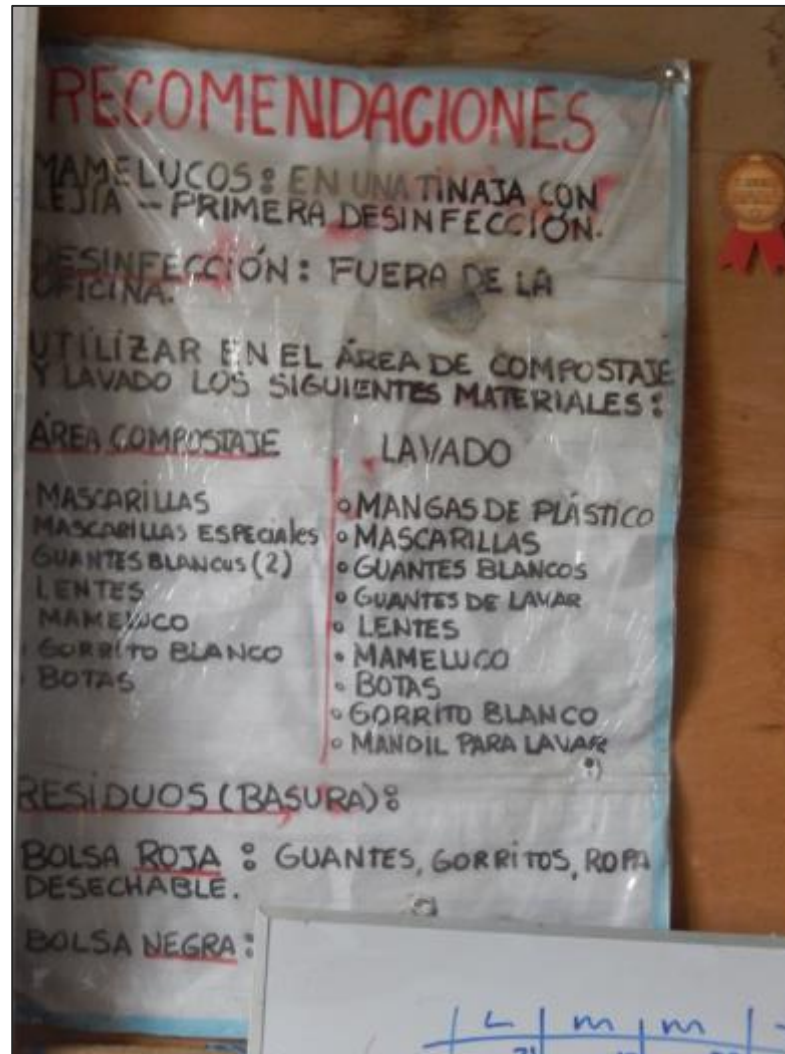 RECOMENDACIONES
MAMELUCOS: EN UNA TINAJA CON
LEJÍA - PRIMERA DESINFECCIÓN.
DESINFECCIÓN: FUERA DE LA
OFICINA.
UTILIZAR EN EL ÁREA DE COMPOSTAJE
Y LAVADO LOS SIGUIENTES MATERIALES:
ÁREA COMPOSTAJE
MASCARILLAS
MASCARILLAS ESPECIALES
GUANTES BLANCOS (2)
LENTES
MAMELUCO
GORRITO BLANCO
BOTAS
LAVADO
MANGAS DE PLÁSTICO
MASCARILLAS
GUANTES BLANCOS
GUANTES DE LAVAR
LENTES
MAMELUCO
BOTAS
GORRITO BLANCO
MANDIL PARA LAVAR
RESIDUOS (BASURA):
BOLSA ROJA: GUANTES, GORRITOS, ROPA
DESECHABLE.
BOLSA NEGRA:
L m m